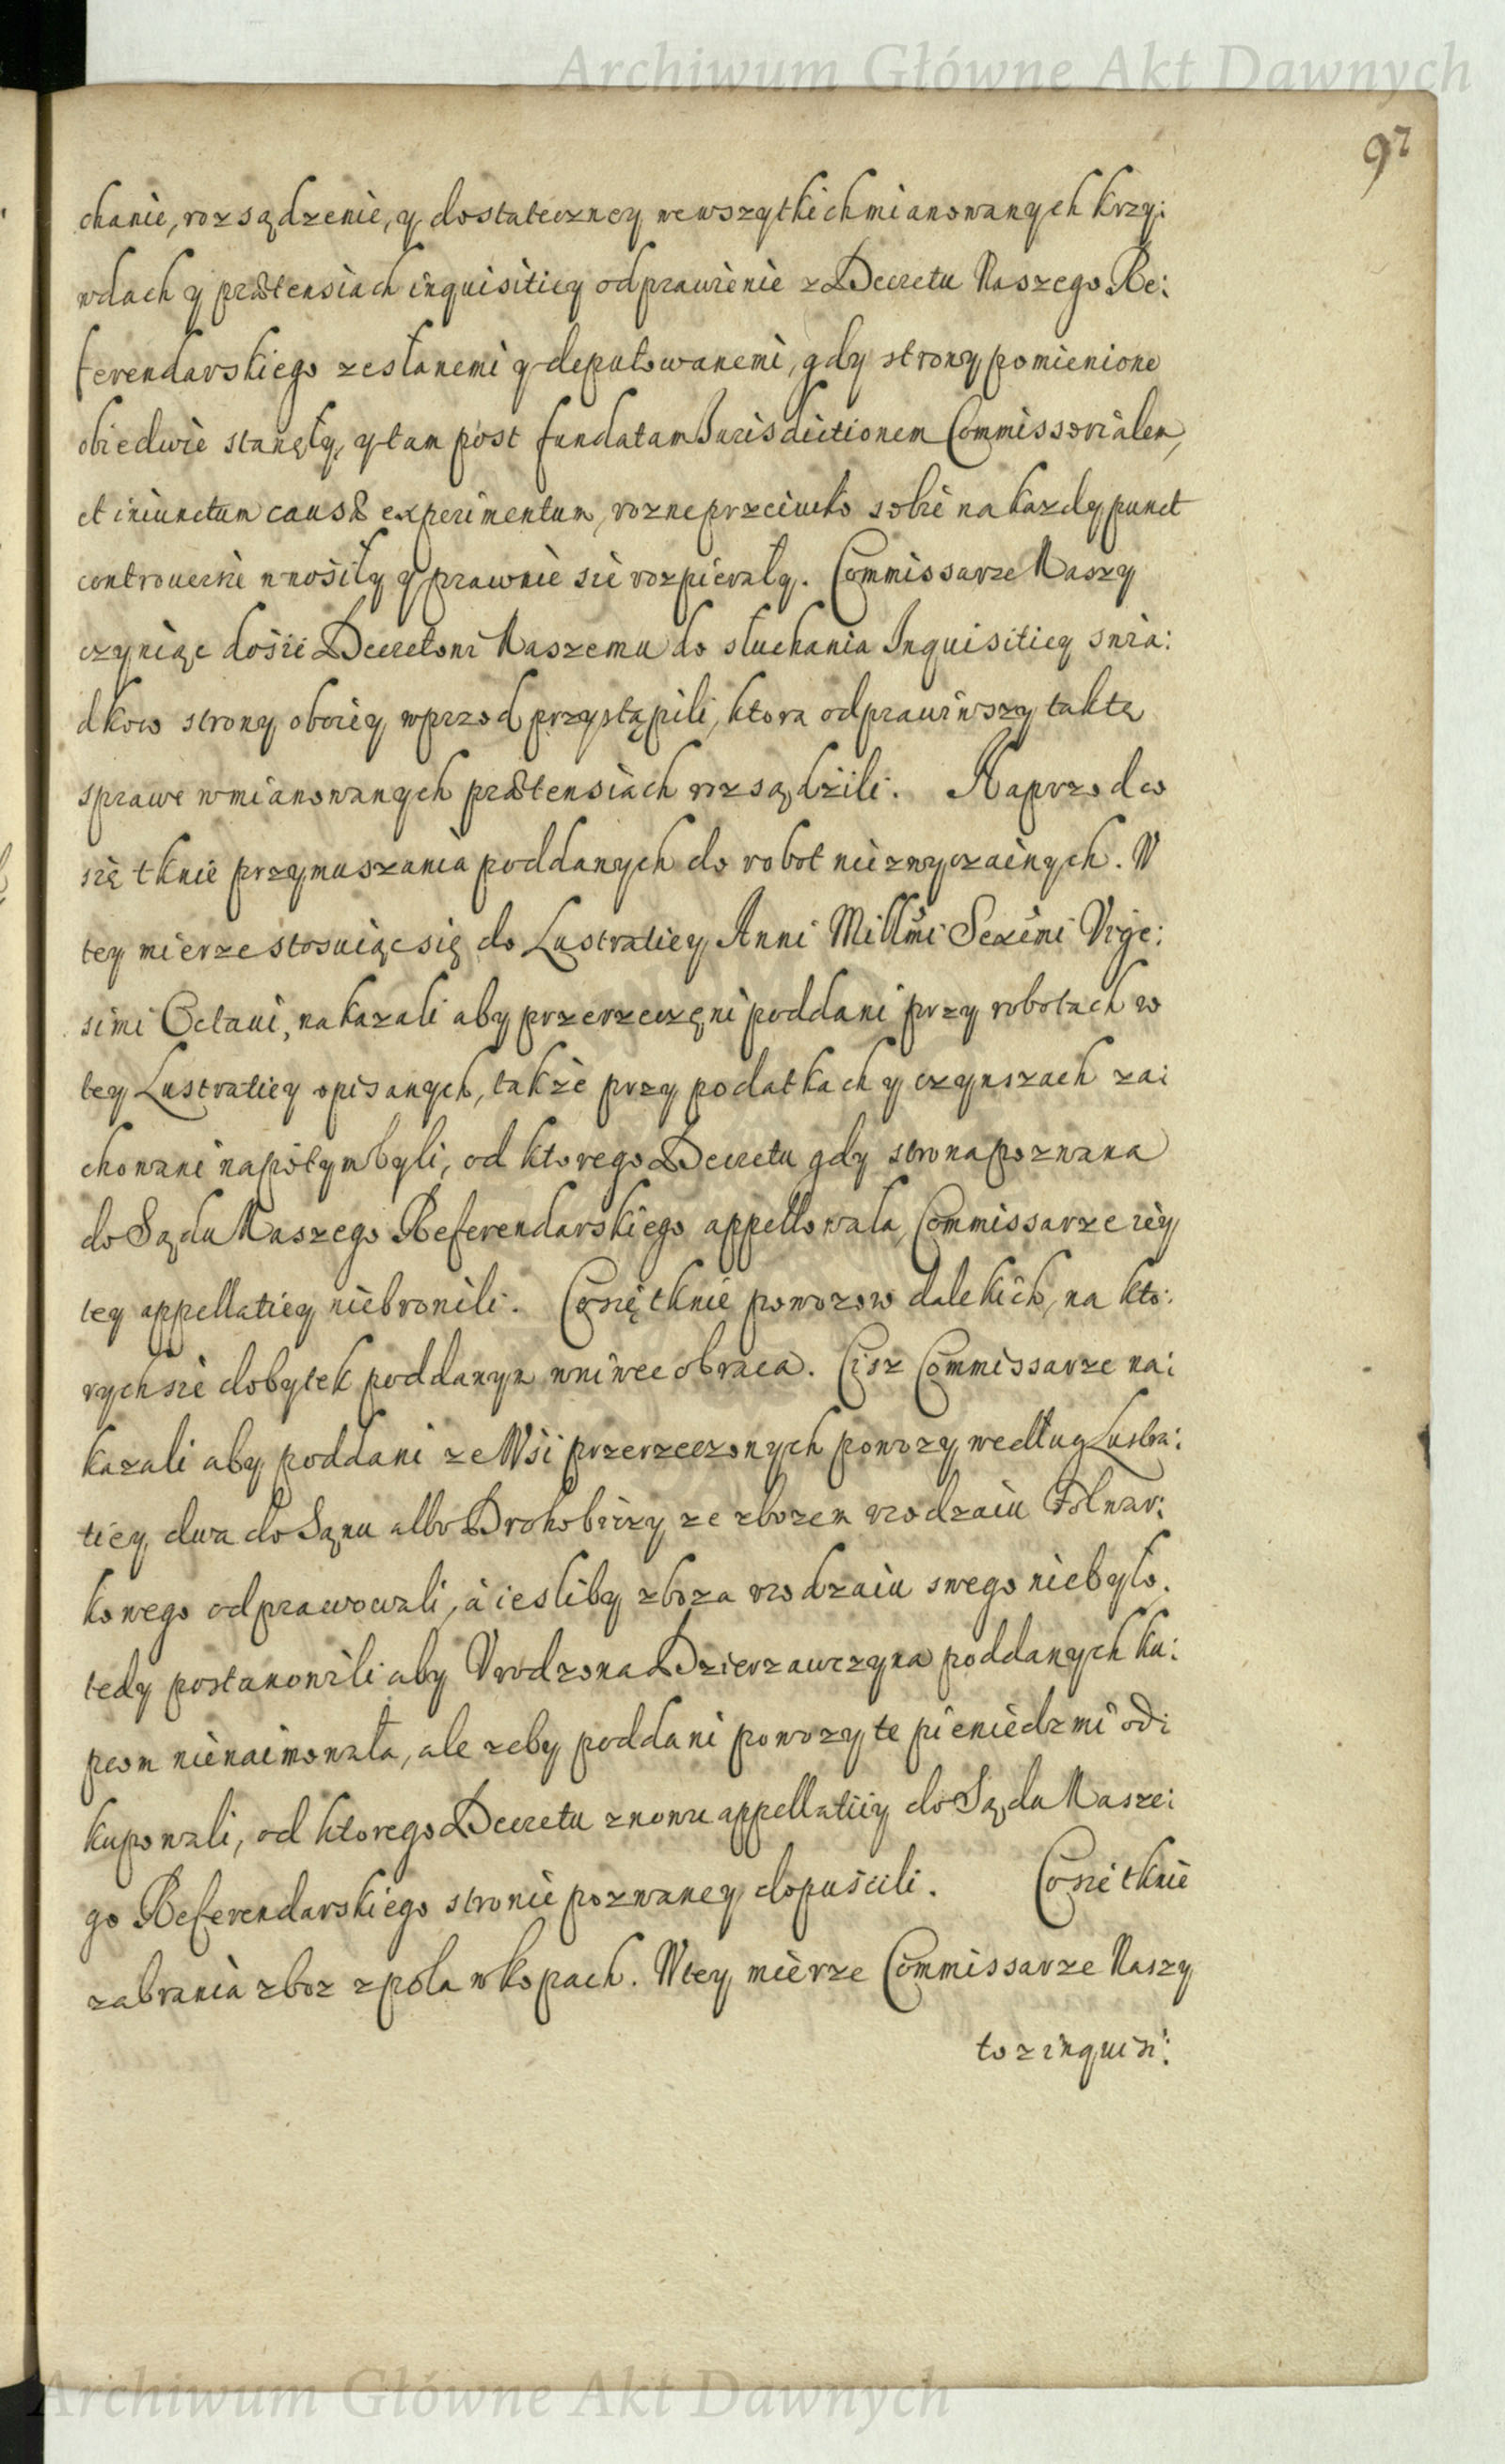 Archiwum Główne Akt Dawnych
97
chanie, rozsądzenie, y dostateczney wewszytkich mianowanych krzy:
wdach y prætensiach inquisitiey odprawienie z Decretu Naszego Re:
ferendarskiego zesłanemi y deputowanemi, gdy strony pomienione
obiedwie stanęły, y tam post fundatam Jurisdictionem Commissorialem,
et iniunctum causæ experimentum, rozne przeciwko sobie na kazdy punct
controuersie wnosiły y prawnie sie rozpierały. Commissarze Naszy
czyniąc dosić Decretowi Naszemu do słuchania Inquisitiey swia:
dkow strony oboiey wprzod przystąpili, ktora odprawiwszy taktę
sprawe wmianowanych prætensiach rozsądzili. Naprzod co
się tknie przymuszania poddanych do robot niezwyczainych. W
tey mierze stosuiąc się do Lustratiey Anni Millmi Sexcmi Vige:
simi Octaui, nakazali aby przerzeczęni poddani przy robotach w
tey Lustratiey opisanych, także przy podatkach y czynszach za:
chowani napotym byli, od ktorego Decretu gdy strona pozwana
do Sądu Naszego Referendarskiego appellowała, Commissarze iey
tey appellatiey niebronili. Cosię tknie powozow dalekich, na kto:
rych sie dobytek poddanym wniwec obraca. Cisz Commissarze na:
kazali aby poddani ze Wsi przerzeczonych powozy według Lustra:
tiey dwa do Sąnu albo Drohobiczy ze zbozem vrodzaiu Folwar:
kowego odprawowali, à iesliby zboza vrodzaiu swego niebyło.
tedy postanowili aby Vrodzona Dzierzawczyna poddanych ku:
pcom nienaimowała, ale zeby poddani powozy te pieniedzmi od:
kupowali, od ktorego Decretu znowu appellatiey do Sądu Nasze:
go Referendarskiego stronie pozwaney dopuscili. Cosie tknie
zabrania zboz z pola w kopach. Wtey mierze Commissarze Naszy
to z inquisi:
Archiwum Główne Akt Dawnych